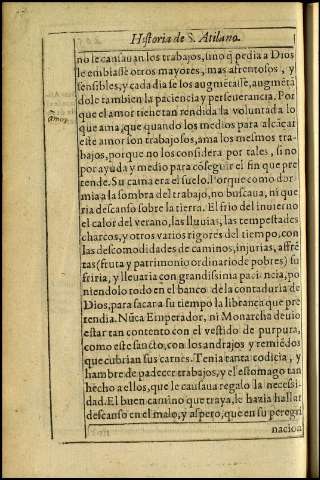 Historia de S. Atilano.
no le cansauan los trabajos, sino q̃ pedia a Dios
le embiasse otros mayores, mas afrentosos, y
sensibles, y cada dia se los augmẽtasse, augmẽtã
dole tambien la paciencia y perseuerancia. Por
que el amor tiene tan rendida la voluntad a lo
que ama, que quando los medios para alcãçar
este amor son trabajosos, ama los mesmos tra-
bajos, porque no los considera por tales, si no
por ayuda y medio para cõseguir el fin que pre
tende. Su cama era el suelo. Porque como dor-
mia a la sombra del trabajo, no buscaua, ni que
ria descanso sobre la tierra. El frio del inuierno
el calor del verano, las lluuias, las tempestades
charcos, y otros varios rigores del tiempo, con
las descomodidades de caminos, injurias, affrẽ
tas (fruta y patrimonio ordinario de pobres) su
friria, y lleuaria con grandissima paciencia, po
niendolo todo en el banco de la contaduria de
Dios, para sacar a su tiempo la librança que pre
tendia. Nũca Emperador, ni Monarcha deuio
estar tan contento con el vestido de purpura,
como este sancto, con los andrajos y remiẽdos
que cubrian sus carnes. Tenia tanta codicia, y
hambre de padecer trabajos, y el estomago tan
hecho a ellos, que le causaua regalo la necessi-
dad. El buen camino que traya, le hazia hallar
descanso en el malo, y aspero, que en su peregri
nacion